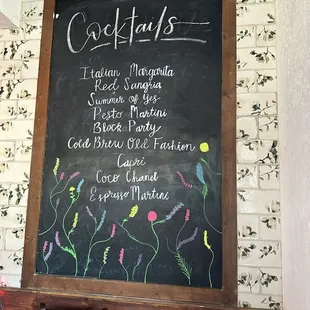 Cocktails
Italian Margarita
Red Sangria
Summer of Yes
Pesto Martini
Block Party
Cold Brew Old Fashion
Capri
Coco Chanel
Espresso Martini